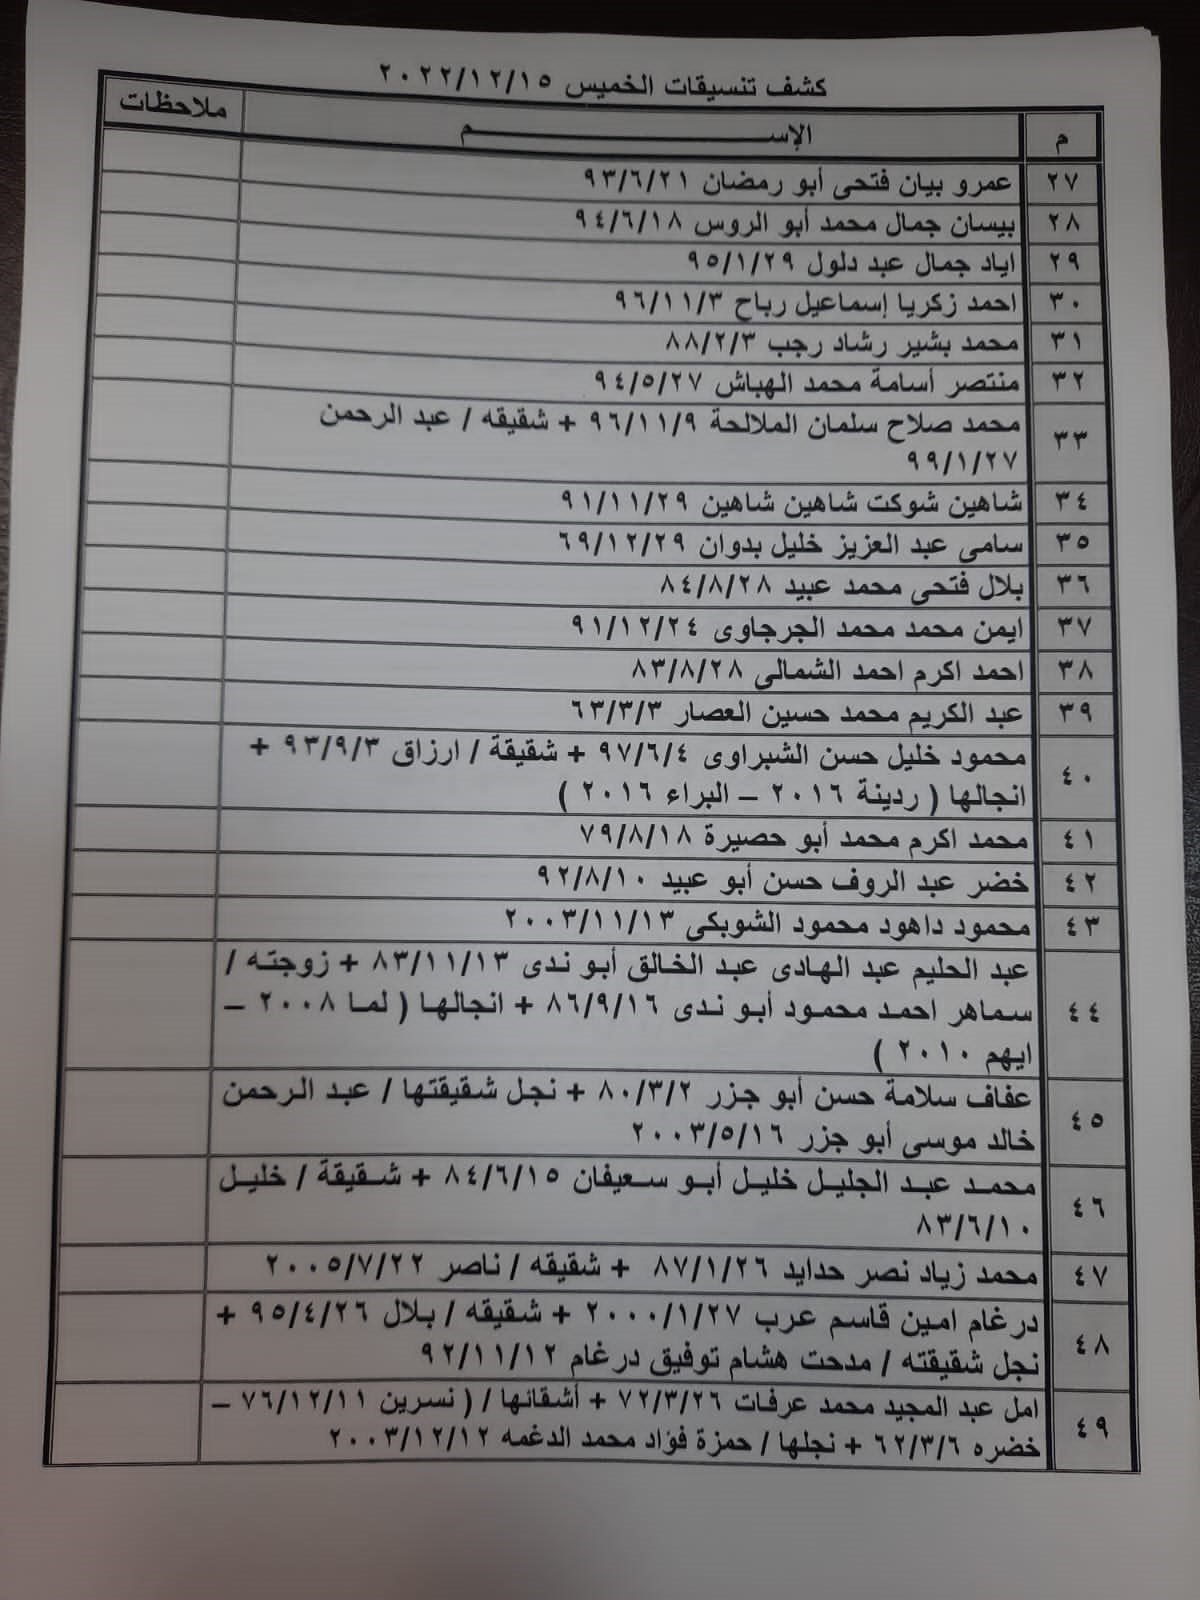 كشف تنسيقات الخميس ٢٠٢٢/١٢/١٥
م الإســـــــــم ملاحظات
٢٧ عمرو بيان فتحى أبو رمضان ٩٣/٦/٢١
٢٨ بيسان جمال محمد أبو الروس ٩٤/٦/١٨
٢٩ اياد جمال عبد دلول ٩٥/١/٢٩
٣٠ احمد زكريا إسماعيل رباح ٩٦/١١/٣
٣١ محمد بشير رشاد رجب ٨٨/٢/٣
٣٢ منتصر أسامة محمد الهباش ٩٤/٥/٢٧
٣٣ محمد صلاح سلمان الملالحة ٩٦/١١/٩ + شقيقه / عبد الرحمن
٩٩/١/٢٧
٣٤ شاهين شوكت شاهين شاهين ٩١/١١/٢٩
٣٥ سامى عبد العزيز خليل بدوان ٦٩/١٢/٢٩
٣٦ بلال فتحى محمد عبيد ٨٤/٨/٢٨
٣٧ ايمن محمد محمد الجرجاوى ٩١/١٢/٢٤
٣٨ احمد اكرم احمد الشمالى ٨٣/٨/٢٨
٣٩ عبد الكريم محمد حسين العصار ٦٣/٣/٣
٤٠ محمود خليل حسن الشبراوى ٩٧/٦/٤ + شقيقة / ارزاق ٩٣/٩/٣ +
انجالها ( ردينة ٢٠١٦ – البراء ٢٠١٦ )
٤١ محمد اكرم محمد أبو حصيرة ٧٩/٨/١٨
٤٢ خضر عبد الروف حسن أبو عبيد ٩٢/٨/١٠
٤٣ محمود داهود محمود الشوبكى ٢٠٠٣/١١/١٣
٤٤ عبد الحليم عبد الهادى عبد الخالق أبو ندى ٨٣/١١/١٣ + زوجته /
سماهر احمد محمود أبو ندى ٨٦/٩/١٦ + انجالها ( لما ٢٠٠٨ –
ايهم ٢٠١٠ )
٤٥ عفاف سلامة حسن أبو جزر ٨٠/٣/٢ + نجل شقيقتها / عبد الرحمن
خالد موسى أبو جزر ٢٠٠٣/٥/١٦
٤٦ محمد عبد الجليل خليل أبو سعيفان ٨٤/٦/١٥ + شقيقة / خليل
٨٣/٦/١٠
٤٧ محمد زياد نصر حدايد ٨٧/١/٢٦ + شقيقه / ناصر ٢٠٠٥/٧/٢٢
٤٨ درغام امين قاسم عرب ٢٠٠٠/١/٢٧ + شقيقه / بلال ٩٥/٤/٢٦ +
نجل شقيقته / مدحت هشام توفيق درغام ٩٢/١١/١٢
٤٩ امل عبد المجيد محمد عرفات ٧٢/٣/٢٦ + أشقائها / ( نسرين ٧٦/١٢/١١ –
خضره ٦٢/٣/٦ + نجلها / حمزة فؤاد محمد الدغمه ٢٠٠٣/١٢/١٢